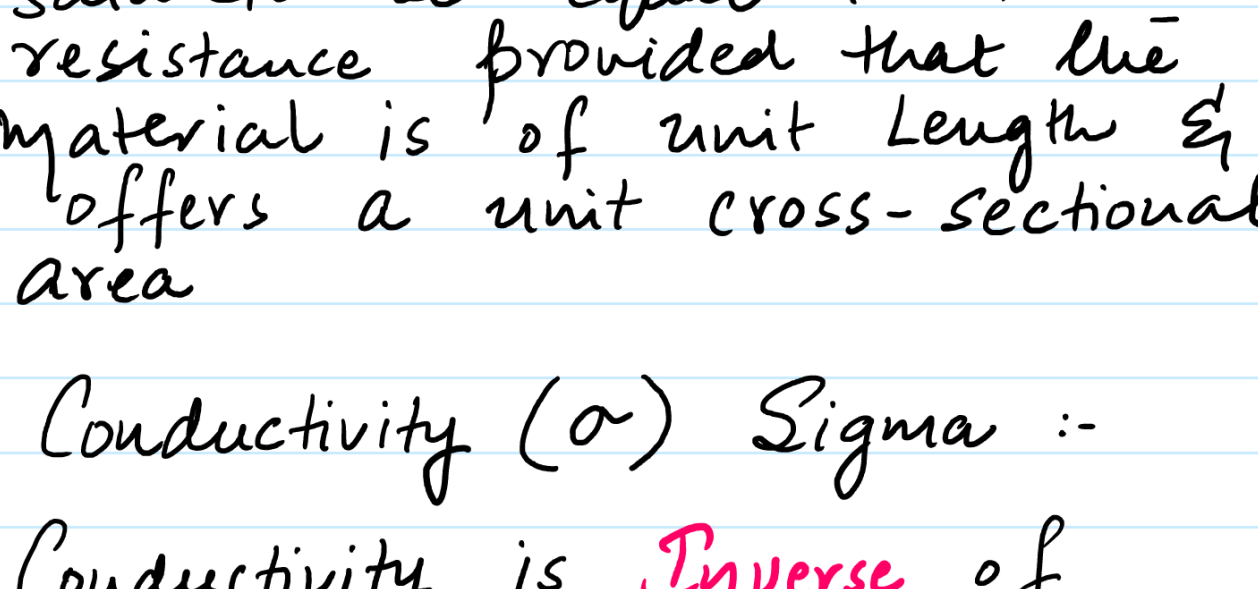 resistance provided that the
material is of unit Length &
offers a unit cross-sectional
area
Conductivity (σ) Sigma :-
Conductivity is Inverse of